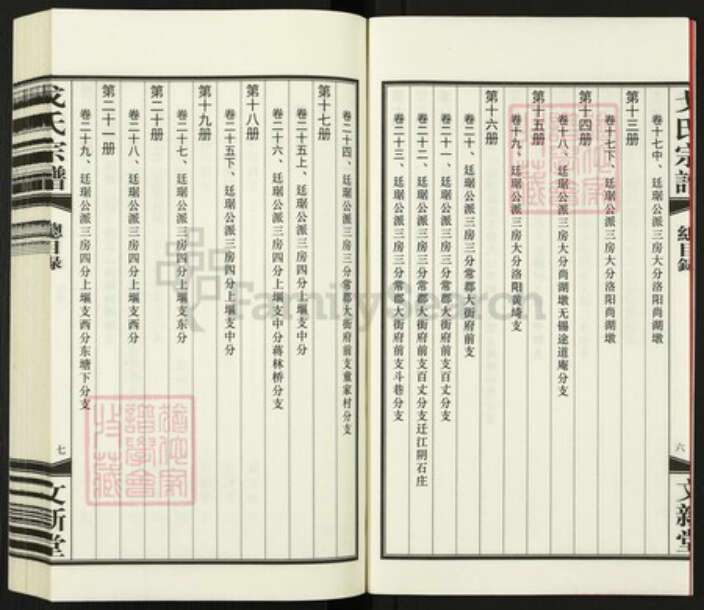 卷十七中、廷瑚公派三房大分洛阳尚湖墩
第十三册
卷十七下、廷瑚公派三房大分洛阳尚湖墩
第十四册
卷十八、廷瑚公派三房大分尚湖墩无锡途道庵分支
第十五册
卷十九、廷瑚公派三房大分洛阳黄埼支
第十六册
卷二十、廷瑚公派三房三分常郡大街府前支
卷二十一、廷瑚公派三房三分常郡大街府前支百丈分支
卷二十二、廷瑚公派三房三分常郡大街府前支百丈分支迁江阴石庄
卷二十三、廷瑚公派三房三分常郡大街府前支斗巷分支
氏宗譜
總目錄
六
文新堂
卷二十四、廷瑚公派三房三分常郡大街府前支董家村分支
第十七册
卷二十五上、廷瑚公派三房四分上堰支中分
卷二十六、廷瑚公派三房四分上堰支中分蒋林桥分支
第十八册
卷二十五下、廷瑚公派三房四分上堰支中分
第十九册
卷二十七、廷瑚公派三房四分上堰支东分
第二十册
卷二十八、廷瑚公派三房四分上堰支西分
第二十一册
卷二十九、廷瑚公派三房四分上堰支西分东塘下分支
氏宗譜
總目錄
七
文新堂
FamilySearch